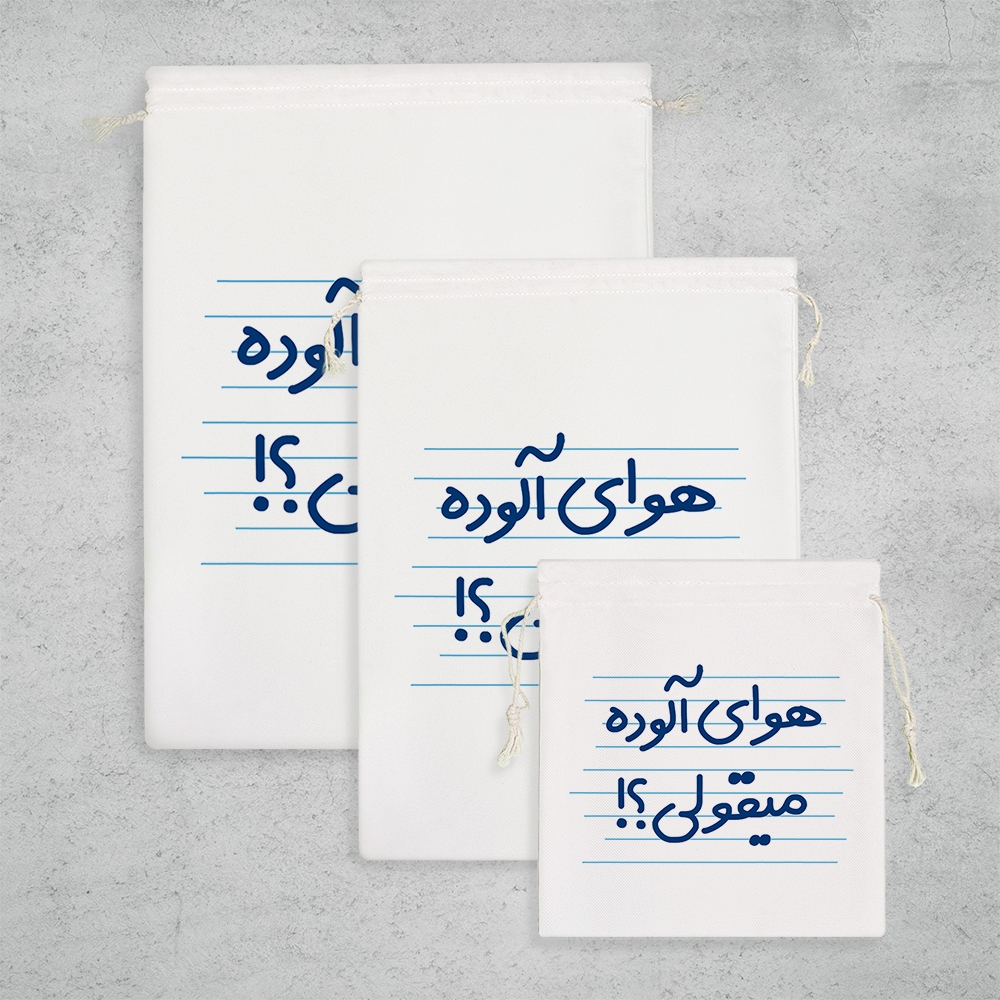 آلوده
؟!
هوای آلوده
؟!
هوای آلوده
میقولی؟!